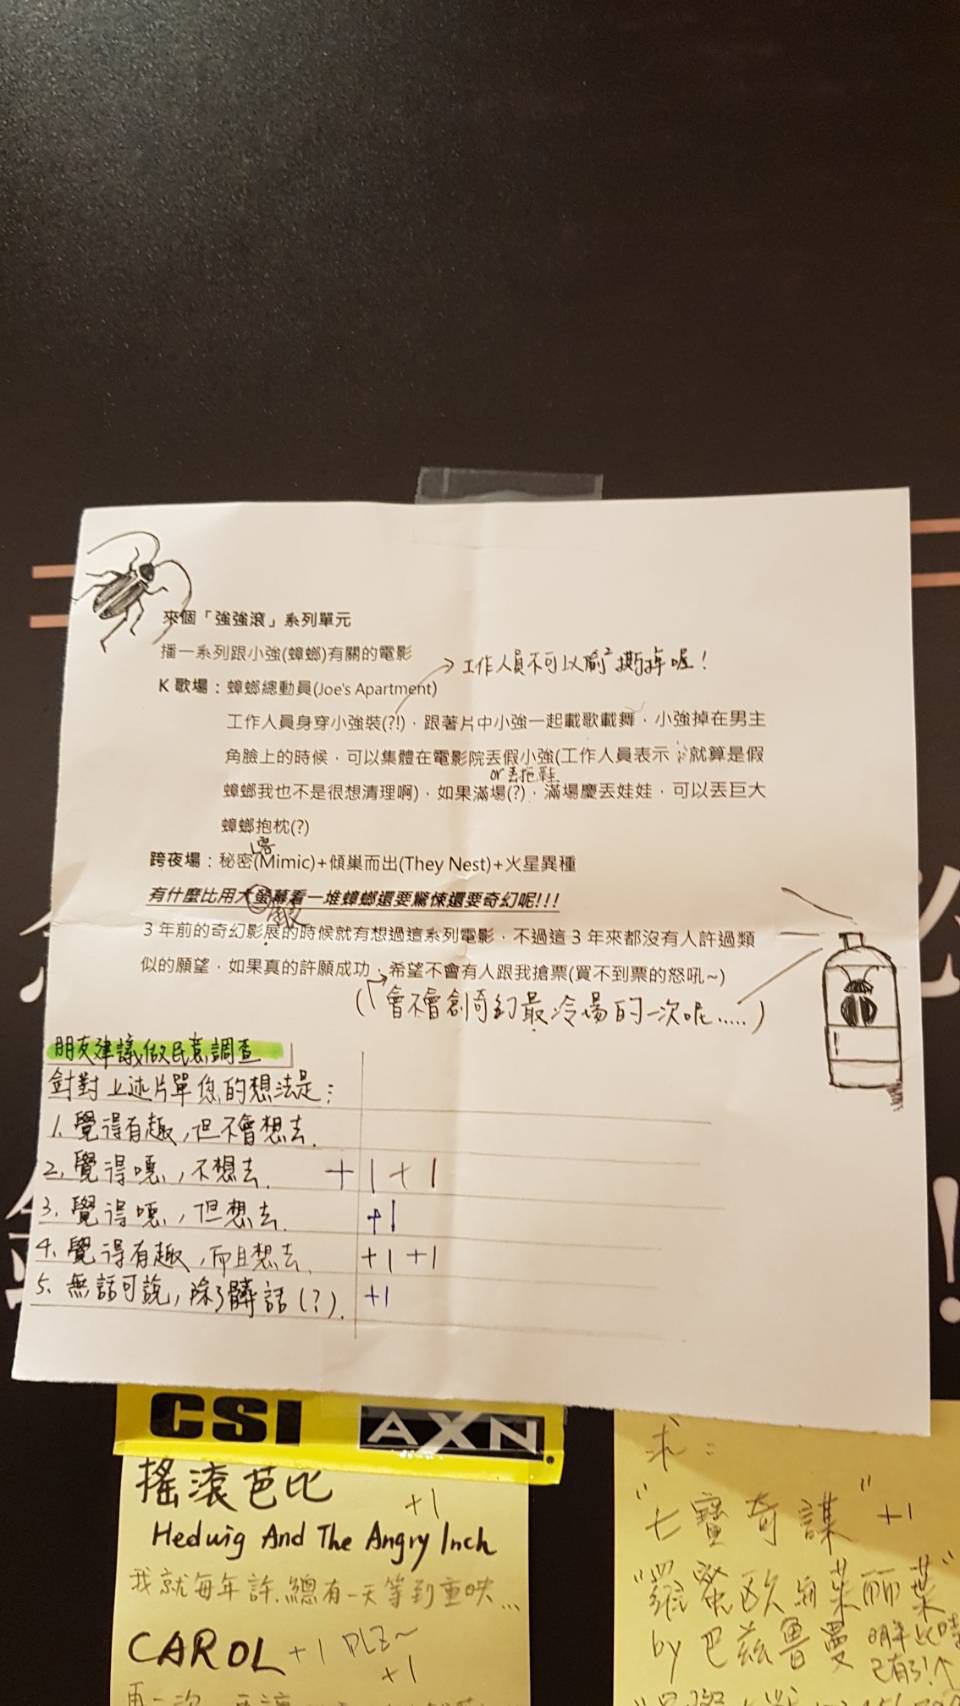 來個「強強滾」系列單元
播一系列跟小強(蟑螂)有關的電影
工作人員不可以偷²撕掉喔！
K 歌場：蟑螂總動員(Joe's Apartment)
工作人員身穿小強裝(?!)，跟著片中小強一起載歌載舞，小強掉在男主
角臉上的時候，可以集體在電影院丟假小強(工作人員表示：就算是假
or 丟拖鞋
蟑螂我也不是很想清理啊)，如果滿場(?)，滿場慶丟娃娃，可以丟巨大
蟑螂抱枕(?)
跨夜場：秘密(Mimic)+傾巢而出(They Nest)+火星異種
有什麼比用大螢幕看一堆蟑螂還要驚悚還要奇幻呢!!!
3 年前的奇幻影展的時候就有想過這系列電影，不過這 3 年來都沒有人許過類
似的願望，如果真的許願成功，希望不會有人跟我搶票(買不到票的怒吼~)
(會不會創奇幻最冷場的一次呢.....)
朋友建議做民意調查
針對上述片單您的想法是：
1. 覺得有趣，但不會想去.
2. 覺得噁，不想去. +1 +1
3. 覺得噁，但想去. +1
4. 覺得有趣，而且想去. +1 +1
5. 無話可說，除了髒話(?). +1
CSI AXN
搖滾芭比 +1
Hedwig And The Angry Inch
我就每年許.總有一天等到重映...
CAROL +1 PLZ~
+1
再一次
求：
"七寶奇謀" +1
"羅密歐與茱麗葉"
by 巴茲魯曼